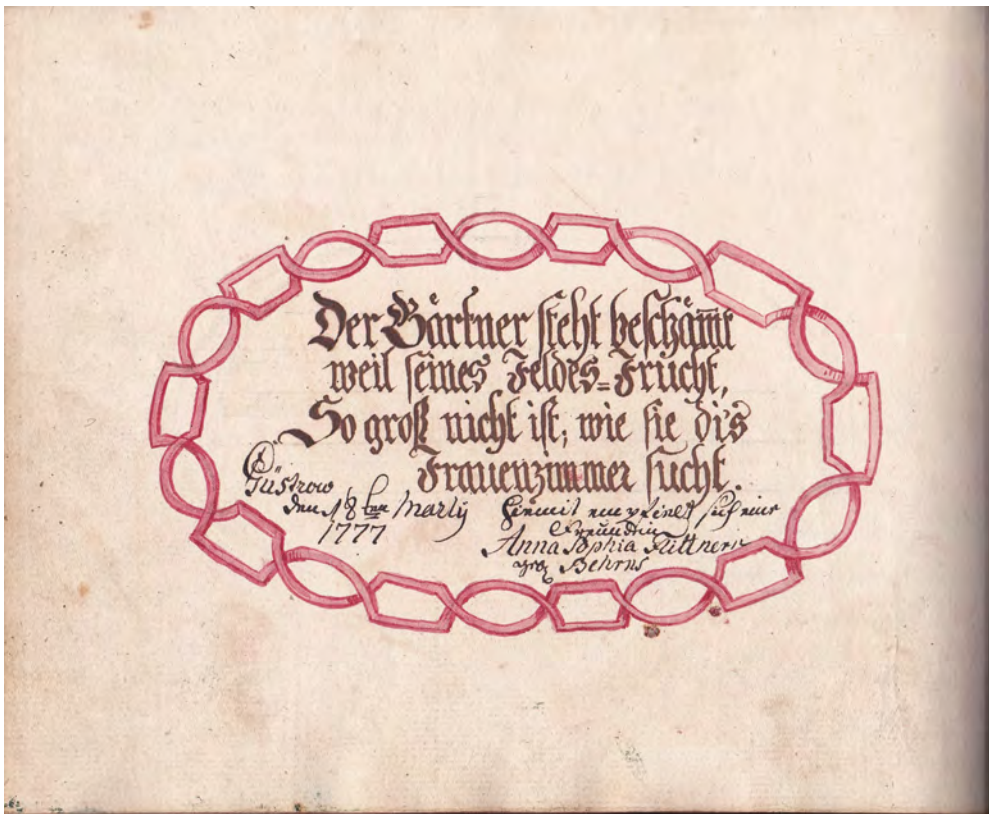 Der Gärtner steht beschämt
weil seines Feldes=Frucht,
So groß nicht ist, wie sie dis
Frauenzimmer sucht.
Güstrow
den 18 ten Martij
1777
Hiemit empfielet sich eine
Freundin
Anna Sophia Füttnern
Behrns